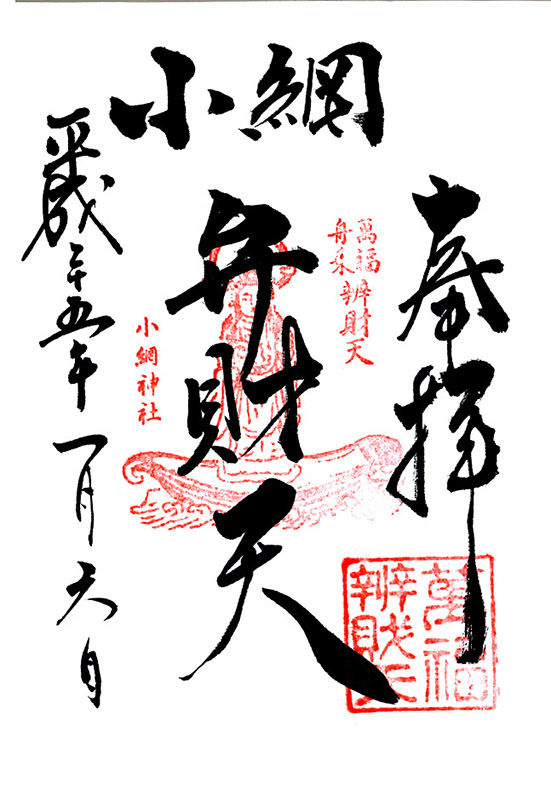 小網
奉拝
萬福
舟乗辨財天
弁財天
小網神社
平成二十五年一月六日
萬福
辨財天